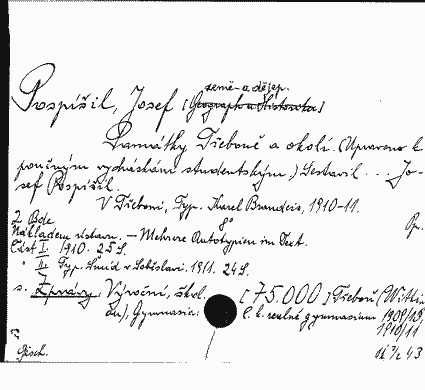 země- a dějep.
Pospíšil, Josef [Geograph u. Historiker]
Památky Třeboně a okolí. (Upraveno k
poučným vycházkám studentským.) Sestavil ... Jo-
sef Pospíšil.
V Třeboni, Typ. Karel Brandeis, 1910-11.
2 Bde 8° Pp.
Nákladem ústavu. — Mehrere Autotypien im Text.
Část I. 1910. 25 S.
" II. Typ. Šmíd v Soběslavi. 1911. 24 S.
s. Zprávy, Výroční, škol. [75.000] Třeboň (Witting-
au), Gymnasia: C. k. reálné gymnasium 1909/10,
1910/11
Gesch.
43